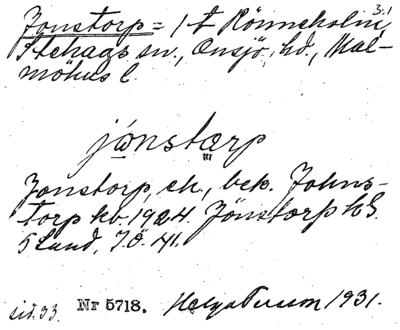 3.1
Jonstorp = 1 t Rönneholm,
Stehags sn., Onsjö hd., Mal-
möhus l.
jònstærp
Jonstorp, ek., bek. Johns-
torp kb. 1924. Jönstorp hS.
Sland, 78. 41.
sid. 93. Nr 5718. Helga Persson 1931.